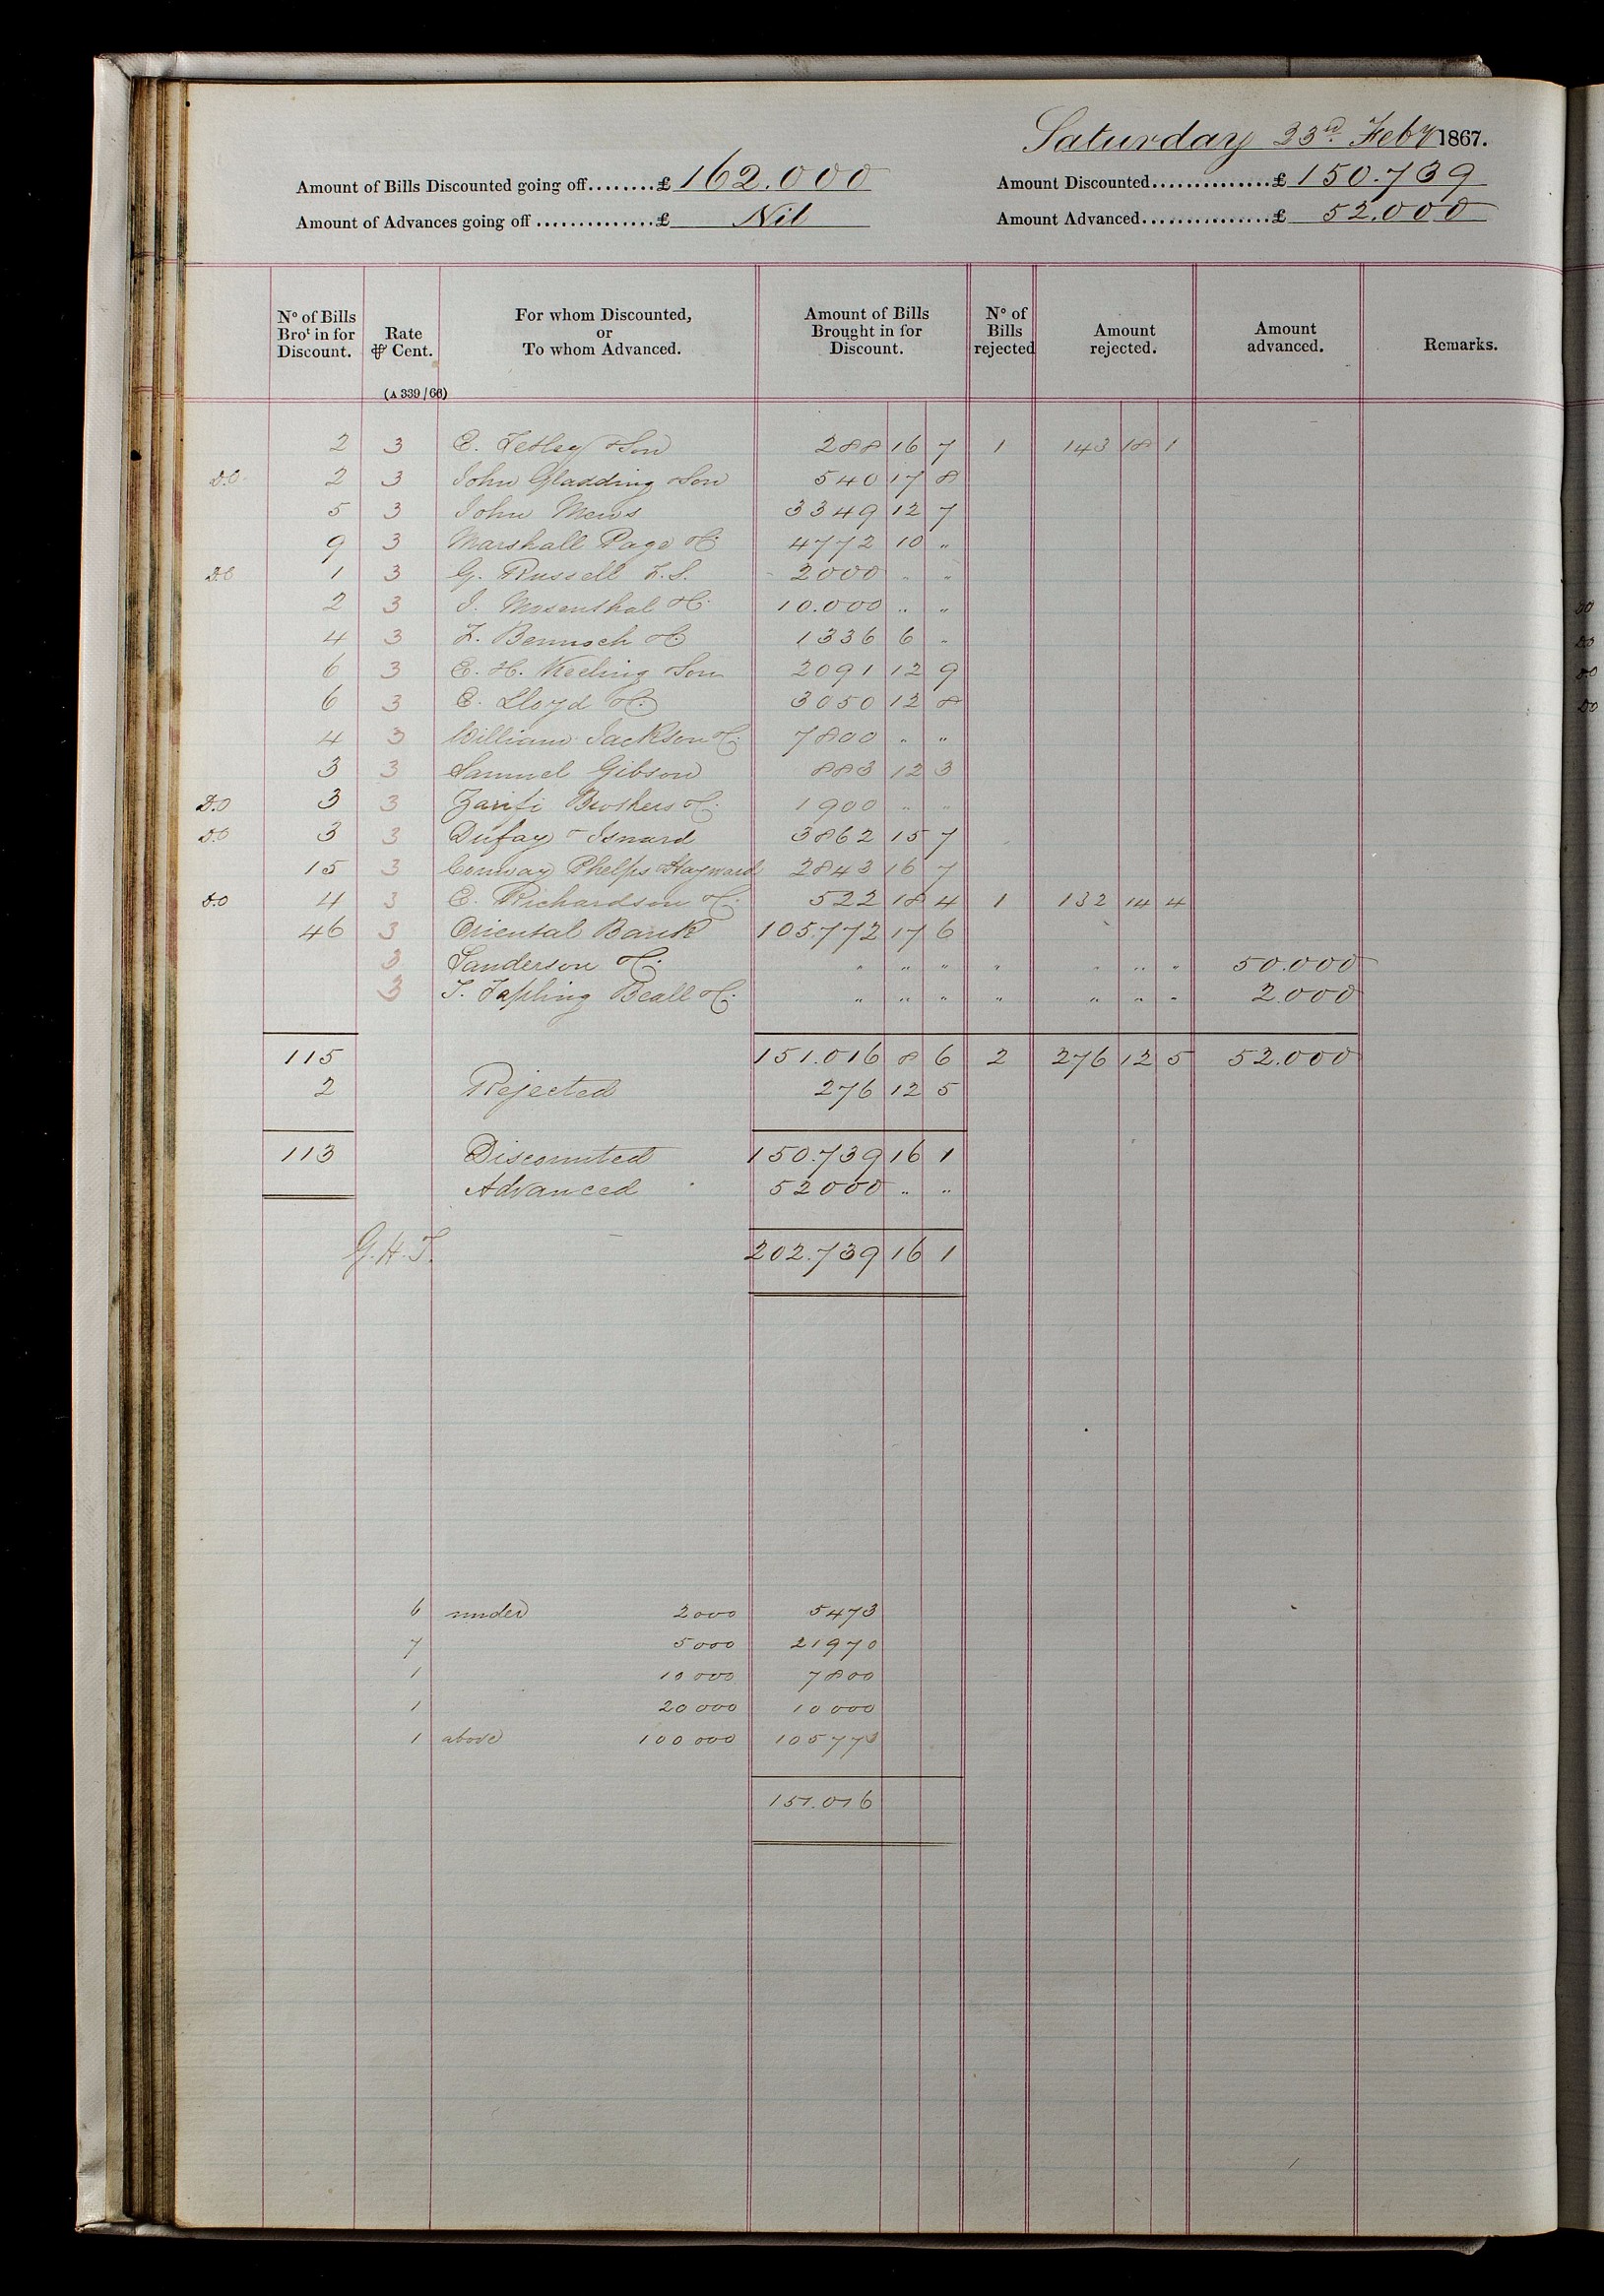 Saturday 23rd Feby 1867.
Amount of Bills Discounted going off........£ 162.000 Amount Discounted...............£ 150.739
Amount of Advances going off ..............£ Nil Amount Advanced................£ 52.000
No of Bills Brot in for Discount. Rate ⅌ Cent. For whom Discounted, or To whom Advanced. Amount of Bills Brought in for Discount. No of Bills rejected Amount rejected. Amount advanced. Remarks.
(A 339/66)
2 3 E. Tetley & Son 288 16 7 1 143 18 1
D.O. 2 3 John Gladding & Son 540 17 8
5 3 John Mews 3349 12 7
9 3 Marshall Page & Co 4772 10 "
D.O 1 3 G. Russell 2000 " "
2 3 J. Mosenthal & Co 10.000 " "
4 3 F. Bennoch & Co 1336 6 "
6 3 E. H. Keeling & Son 2091 12 9
6 3 E. Lloyd & Co 3050 12 8
4 3 William Jackson & Co 7800 " "
3 3 Samuel Gibson 883 12 3
D.O 3 3 Zarifi Brothers & Co 1900 " "
D.O 3 3 Dufay & Isnard 3862 15 7
15 3 Conway Phelps & Hayward 2843 16 7
D.O 4 3 E. Richardson & Co 522 18 4 1 132 14 4
46 3 Oriental Bank 105.772 17 6
3 Sanderson & Co " " " " " " " 50.000
3 T. Tapling Beall & Co " " " " " " " 2.000
115 151.016 8 6 2 276 12 5 52.000
2 Rejected 276 12 5
113 Discounted 150.739 16 1
Advanced 52000 " "
G.H.T. 202.739 16 1
6 under 2000 5473
7 5000 21970
1 10000 7800
1 20000 10000
1 above 100000 105773
151.016